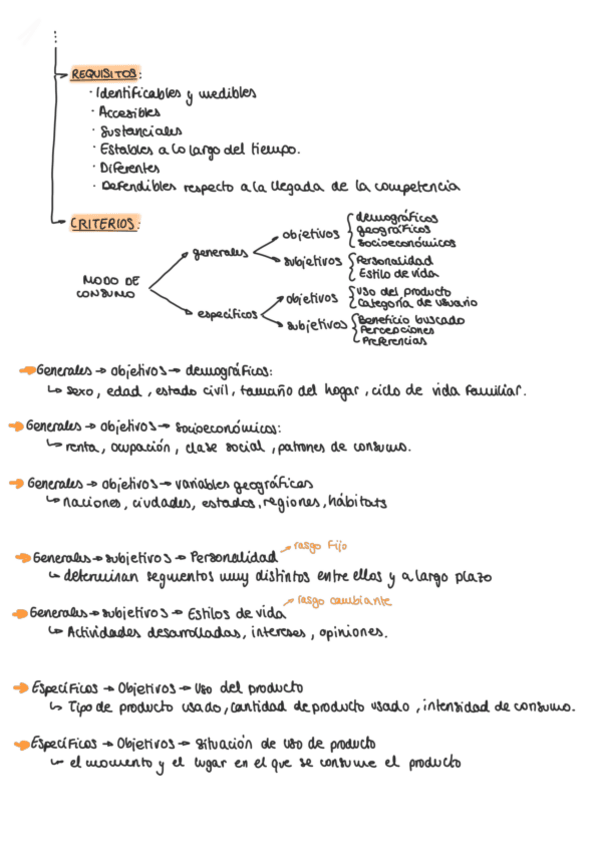 REQUISITOS:
· Identificables y medibles
· Accesibles
· Sustanciales
· Estables a lo largo del tiempo.
· Diferentes
· Defendibles respecto a la llegada de la competencia
CRITERIOS:
MODO DE CONSUMO
generales
objetivos
demográficos
geográficos
socioeconómicos
subjetivos
Personalidad
Estilo de vida
específicos
objetivos
uso del producto
categoría de usuario
subjetivos
Beneficio buscado
Percepciones
Preferencias
➡ Generales → objetivos → demográficos:
↳ sexo, edad, estado civil, tamaño del hogar, ciclo de vida familiar.
➡ Generales → objetivos → socioeconómicos:
↳ renta, ocupación, clase social, patrones de consumo.
➡ Generales → objetivos → variables geográficas
↳ naciones, ciudades, estados, regiones, hábitats
➡ Generales → subjetivos → Personalidad → rasgo fijo
↳ determinan segmentos muy distintos entre ellos y a largo plazo
➡ Generales → subjetivos → Estilos de vida → rasgo cambiante
↳ Actividades desarrolladas, intereses, opiniones.
➡ Específicos → Objetivos → Uso del producto
↳ Tipo de producto usado, cantidad de producto usado, intensidad de consumo.
➡ Específicos → Objetivos → Situación de uso de producto
↳ el momento y el lugar en el que se consume el producto